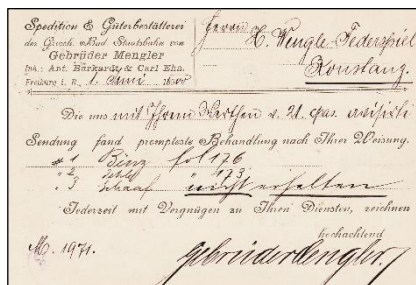 Spedition & Güterbestätterei
der Grossh. Bad. Staatsbahn von
Gebrüder Mengler
Inh.: Ant. Burkardt & Carl Ehn.
Freiburg i. B. 1. Juni 1900
Herrn
H. Wengle-Federspiel
Konstanz.
Die uns mit Ihrem Werthen v. 21. pas. avisirte
Sendung fand prompteste Behandlung nach Ihrer Weisung.
# 1 Binz fol 176
" 2 173
" 3 Schaaf nicht erhalten
Jederzeit mit Vergnügen zu Ihren Diensten, zeichnen
hochachtend
Gebrüder Mengler
M. 1971.